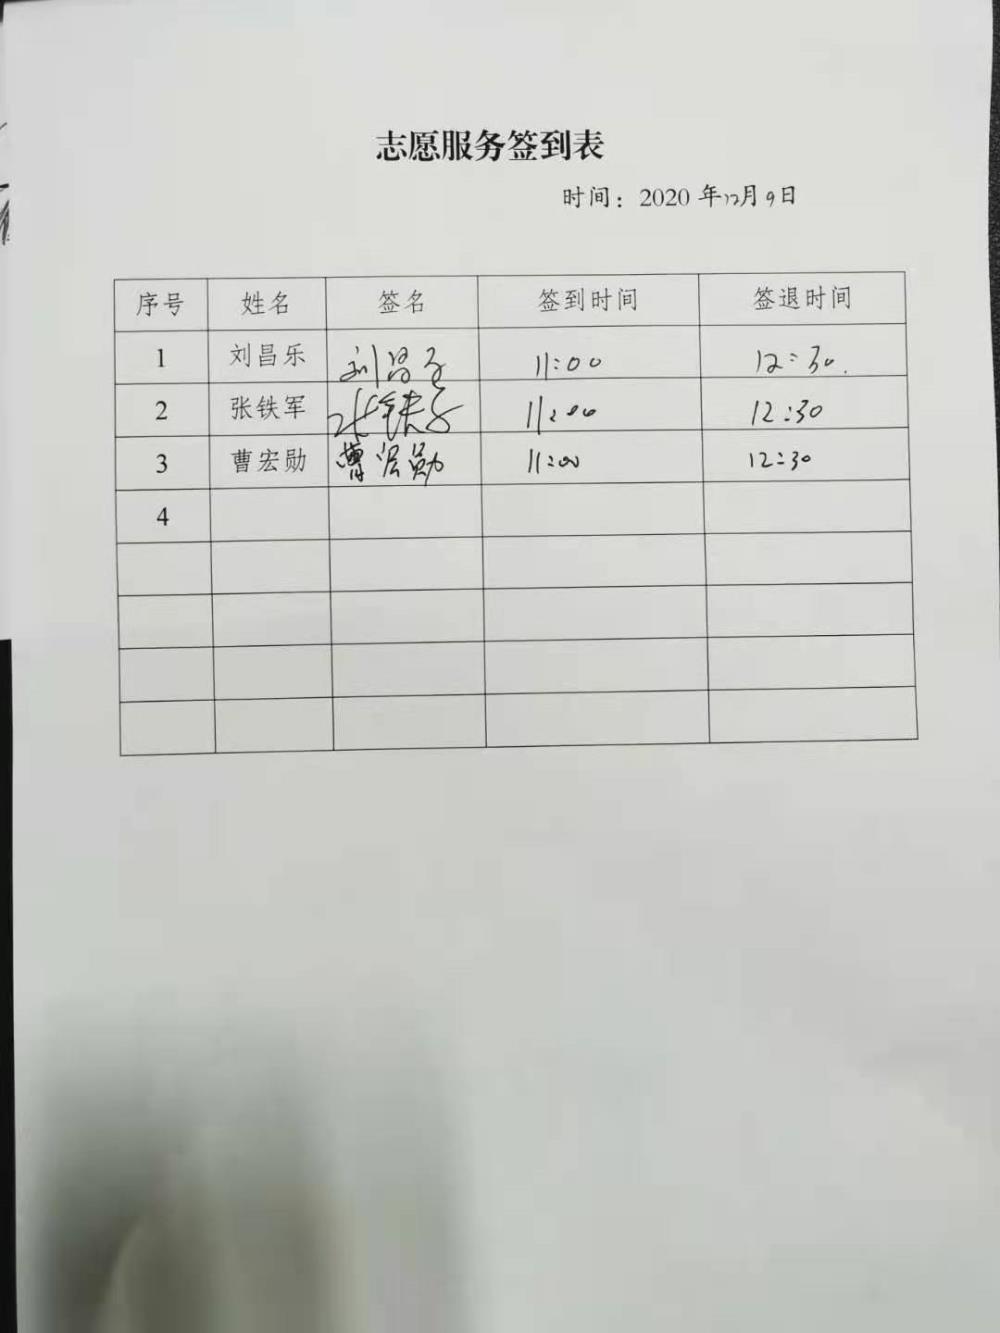 志愿服务签到表
时间：2020 年12月9日
序号 姓名 签名 签到时间 签退时间
1 刘昌乐 刘昌乐 11:00 12:30.
2 张铁军 张铁军 11:00 12:30
3 曹宏勋 曹宏勋 11:00 12:30
4